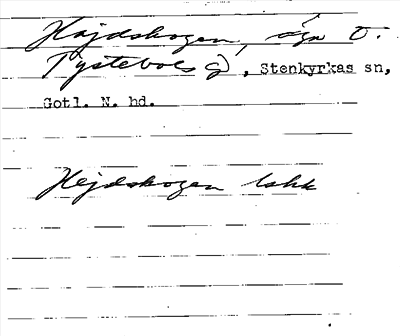 Hajdskogen, äga t.
Tystebols G), Stenkyrkas sn,
Gotl. N. hd.
Hejdskogen lskk